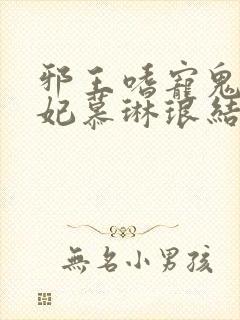 邪王嗜寵鬼
妃慕琳琅結
無名小男孩